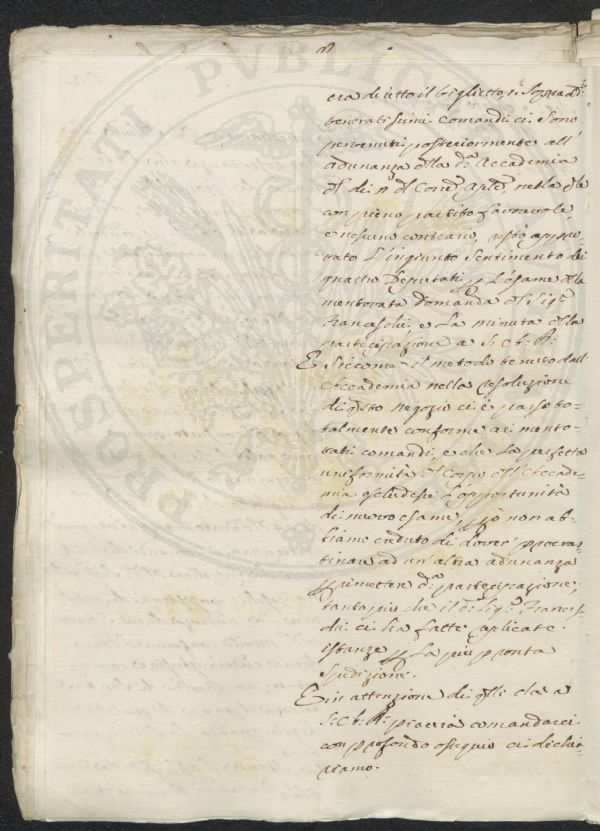 era di tutto il biglietto, i sopradi:
veneratissimi comandi ci sono
pervenuti posteriormente all'
adunanza della d:a Accademia
del dì n del Corr:e nella q:le
con pieno partito favorevole,
e nessuno contrario, restò appro-
vato l'ingiunto sentimento dei
quattro Deputati p l'esame della
mentovata Domanda del Sig:r
Franceschi, e la minuta della
partecipazione a S: A: R:
E siccome il metodo tenuto dall'
Accademia nella resoluzione
di q:sto negozio ci è parso to-
talmente conforme ai mento-
vati comandi, e che la perfetta
uniformità del Corpo dell'Accade-
mia escludesse l'opportunità
di nuovo esame, p:ciò non ab-
biamo creduto di dover procras-
tinare ad un'altra adunanza
p rimettere d:a partecipazione;
tanto più che il d:o Sig:r Frances-
chi ci ha fatte replicate
istanze p la più pronta
spedizione.
E in attenzione di q:llo che a
S: A: R: piacerà comandarci
con profondo ossequio ci dichia-
riamo.
PROSPERITATI PVBLICAE